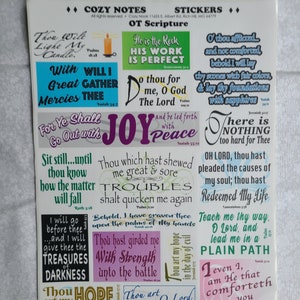 COZY NOTES STICKERS
OT Scripture
Thou Wilt
Light My
Candle.
He is the Rock
HIS WORK
IS PERFECT
O thou afflicted...
and not comforted,
behold, I will lay
thy stones with fair colors,
& lay thy foundations
with sapphires
With WILL I
Great GATHER
Mercies THEE
Do thou for
me, O God
The Lord
For Ye Shall
Go Out with
JOY
and be led forth
with
Peace
There is
NOTHING
too hard for Thee
Sit still...until
thou know
how the matter
will fall
Thou which hast
shewed me
great & sore
TROUBLES
shalt quicken me again
OH LORD, thou hast
pleaded the causes
of my soul; thou hast
Redeemed My Life
I will go
before thee
...and I
will give thee the
TREASURES
of
DARKNESS
Behold, I have graven thee
upon the palms of my hands
Thou hast girded me
With Strength
into the battle
Thou art my
hope
in the day of evil
Teach me thy way,
O Lord, and
lead me in a
PLAIN PATH
I even I,
am He that
comforteth
you
Thou
HOPE
Thou art
Lord